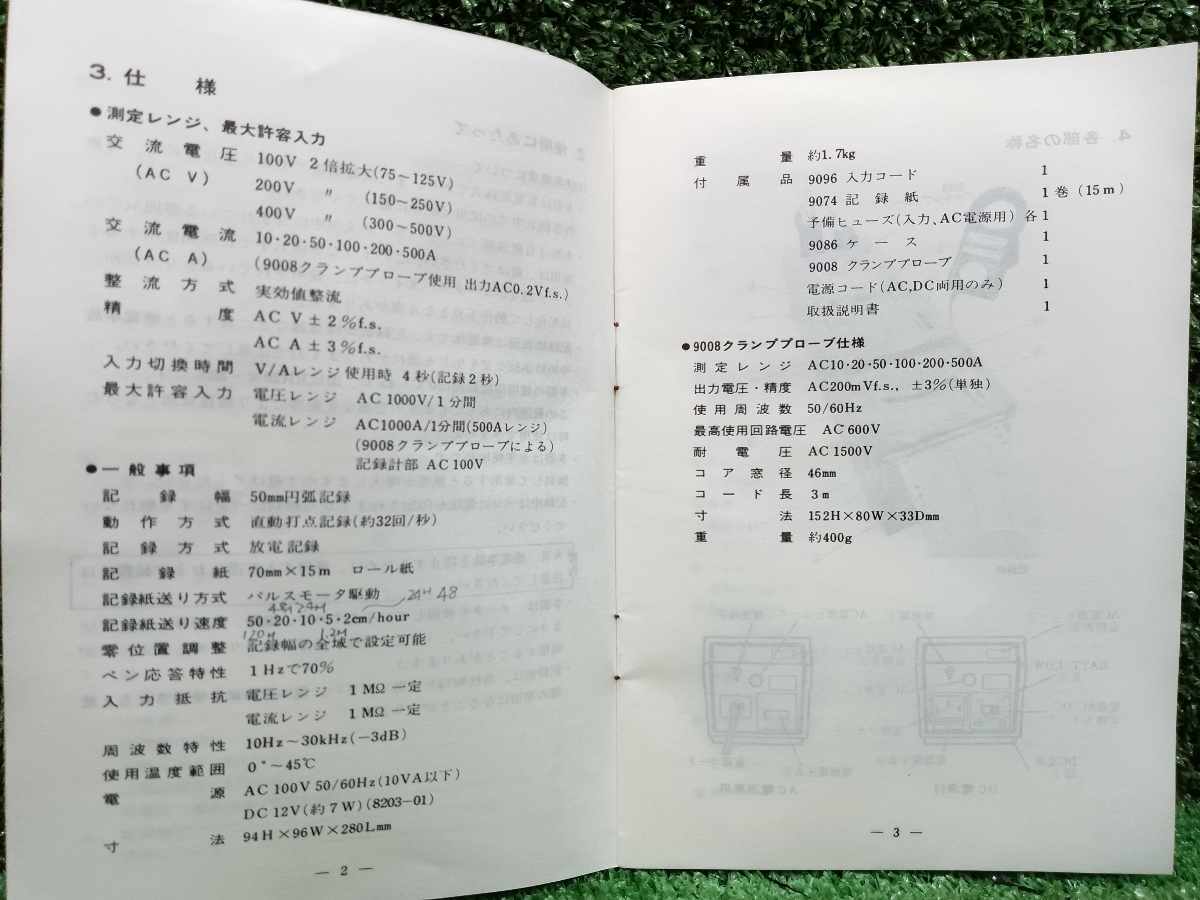 3. 仕 様
● 測定レンジ、最大許容入力
交流電圧 100V 2倍拡大(75～125V)
(AC V) 200V 〃 (150～250V)
400V 〃 (300～500V)
交流電流 10・20・50・100・200・500A
(AC A) (9008クランププローブ使用 出力AC0.2Vf.s.)
整流方式 実効値整流
精度 AC V ± 2%f.s.
AC A ± 3%f.s.
入力切換時間 V/Aレンジ使用時 4秒(記録2秒)
最大許容入力 電圧レンジ AC 1000V/1分間
電流レンジ AC1000A/1分間(500Aレンジ)
(9008クランププローブによる)
記録計部 AC 100V
● 一般事項
記録幅 50mm円弧記録
動作方式 直動打点記録(約32回/秒)
記録方式 放電記録
記録紙 70mm×15m ロール紙
記録紙送り方式 パルスモータ駆動
24H 48
48H 24H
記録紙送り速度 50・20・10・5・2cm/hour
120H 1.2H
零位置調整 記録幅の全域で設定可能
ペン応答特性 1Hzで70%
入力抵抗 電圧レンジ 1MΩ一定
電流レンジ 1MΩ一定
周波数特性 10Hz～30kHz(−3dB)
使用温度範囲 0°～45℃
電源 AC 100V 50/60Hz(10VA以下)
DC 12V(約7W)(8203-01)
寸法 94H×96W×280Lmm
— 2 —
重量 約1.7kg
付属品 9096 入力コード 1
9074 記録紙 1巻(15m)
予備ヒューズ(入力、AC電源用) 各1
9086 ケース 1
9008 クランププローブ 1
電源コード(AC,DC両用のみ) 1
取扱説明書 1
● 9008クランププローブ仕様
測定レンジ AC10・20・50・100・200・500A
出力電圧・精度 AC200mVf.s., ±3%(単独)
使用周波数 50/60Hz
最高使用回路電圧 AC 600V
耐電圧 AC 1500V
コア窓径 46mm
コード長 3m
寸法 152H×80W×33Dmm
重量 約400g
— 3 —